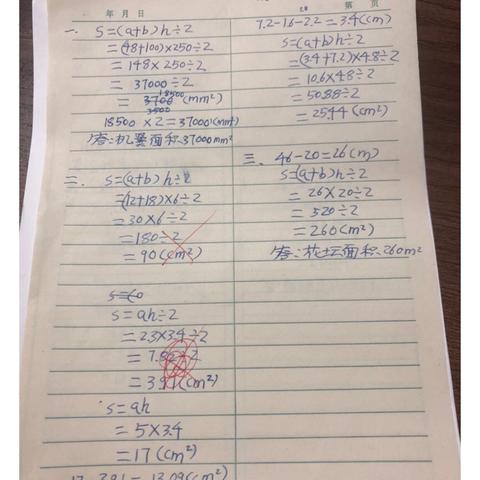 年 月 日
一、 S=(a+b)h÷2
=(48+100)×250÷2
=148×250÷2
=37000÷2
=18500(mm²)
18500×2=37000(mm²)
答:机翼面积37000mm²
二、 S=(a+b)h÷2
=(12+18)×6÷2
=30×6÷2
=180÷2
=90(cm²)
S=ah÷2
=2.3×3.4÷2
=7.82÷2
=3.91(cm²)
S=ah
=5×3.4
=17(cm²)
17-3.91=13.09(cm²)
第 页
7.2-1.6-2.2=3.4(cm)
S=(a+b)h÷2
=(3.4+7.2)×4.8÷2
=10.6×4.8÷2
=50.88÷2
=25.44(cm²)
三、 46-20=26(m)
S=(a+b)h÷2
=26×20÷2
=520÷2
=260(cm²)
答:花坛面积260m²